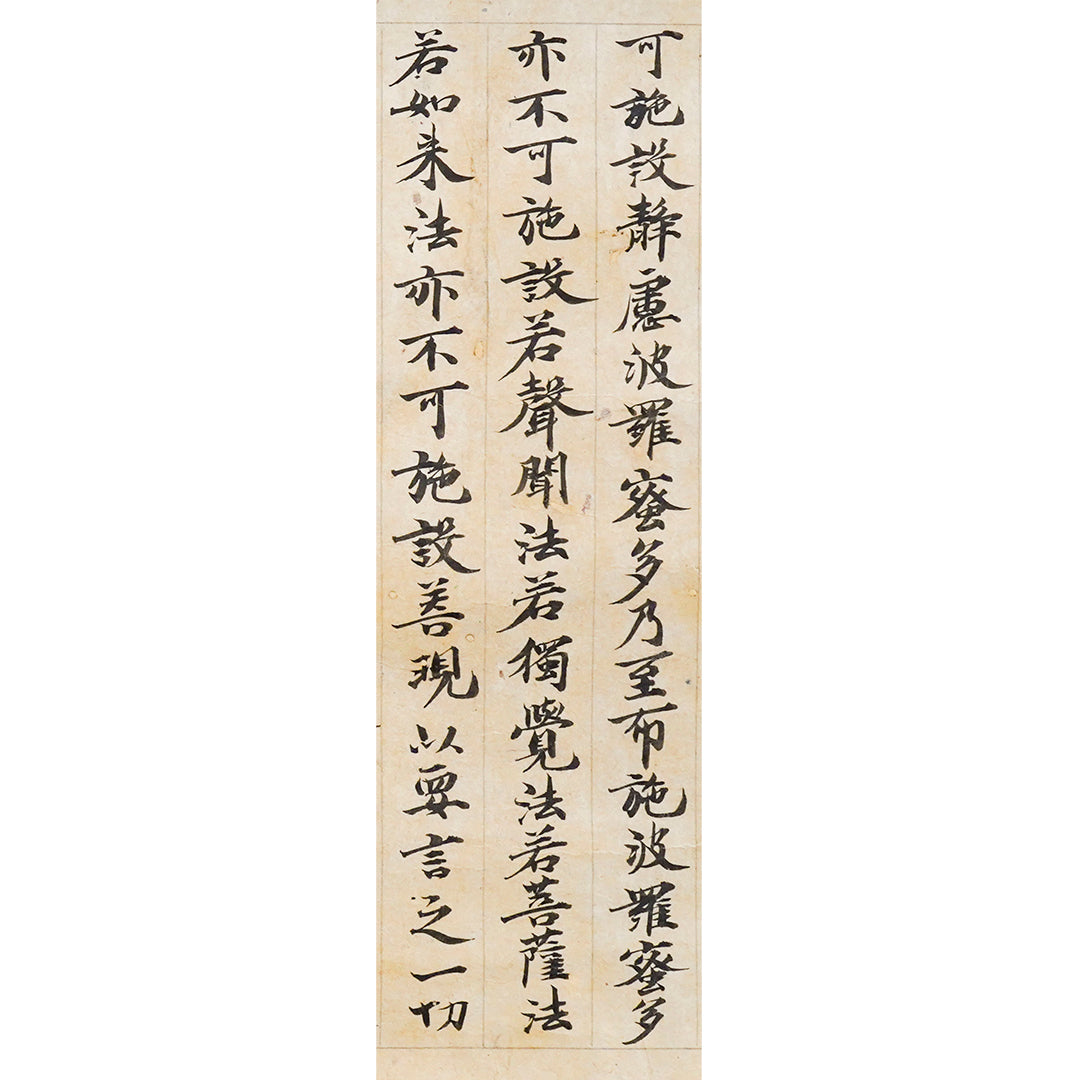 可施設靜慮波羅蜜多乃至布施波羅蜜多
亦不可施設若聲聞法若獨覺法若菩薩法
若如来法亦不可施設善現以要言之一切